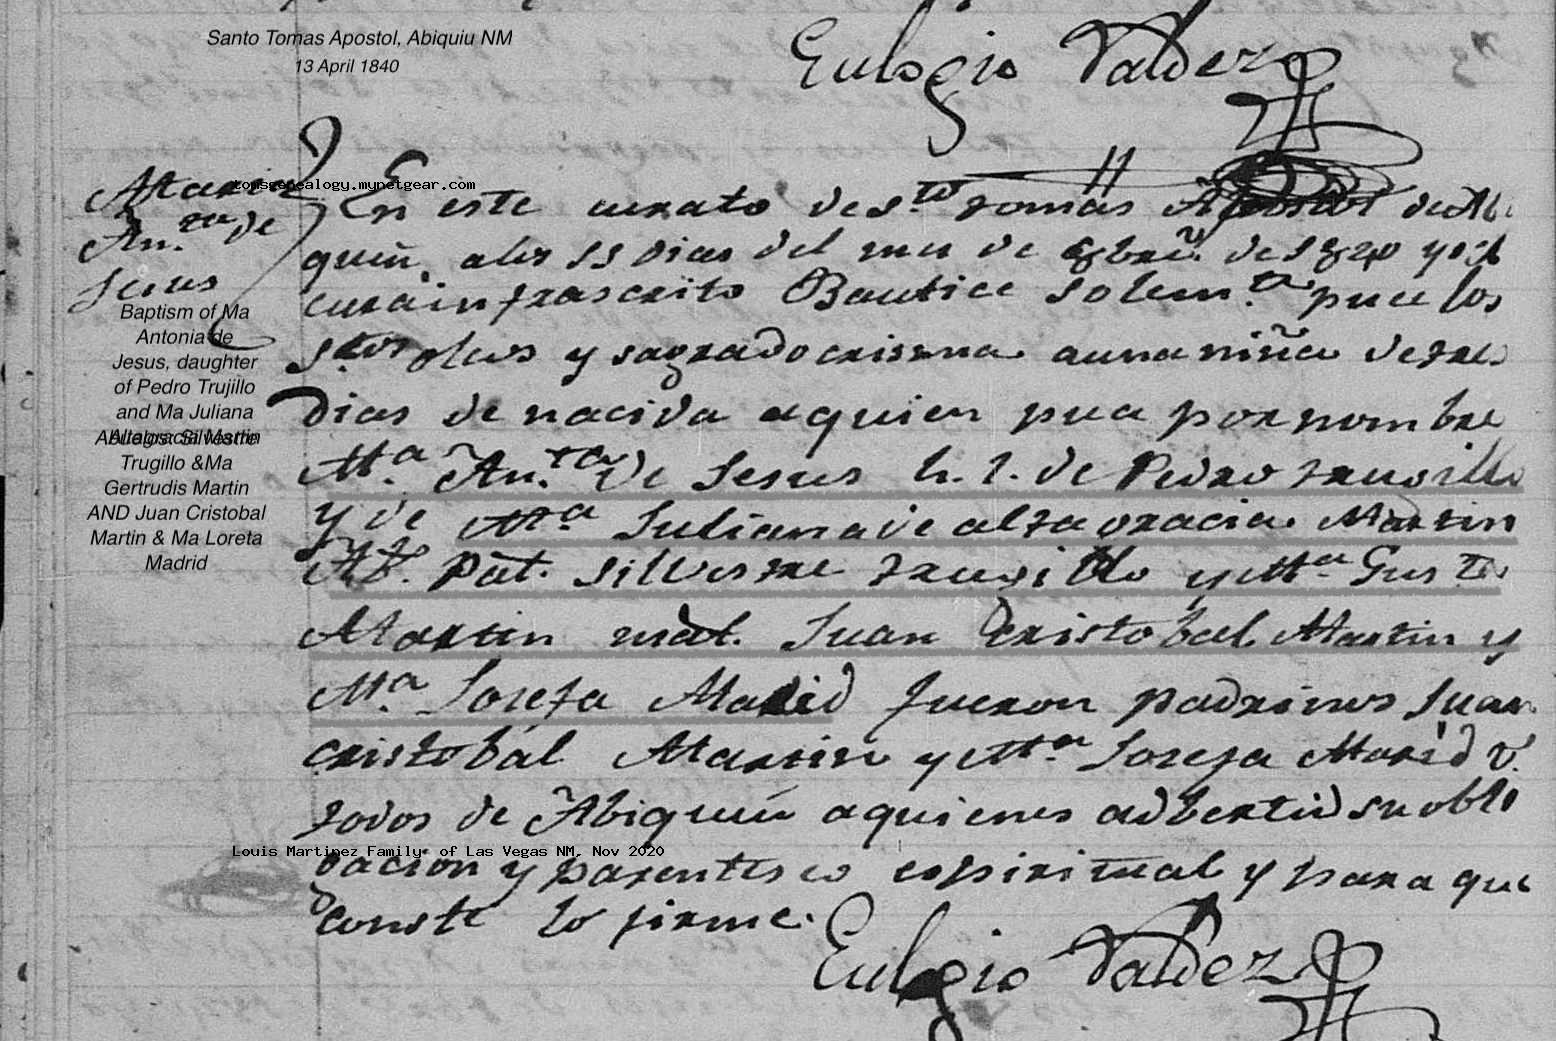 Santo Tomas Apostol, Abiquiu NM
13 April 1840
Eulogio Valdez
Maria
An.ta de
Jesus
tomsgenealogy.mynetgear.com
Baptism of Ma
Antonia de
Jesus, daughter
of Pedro Trujillo
and Ma Juliana
Altagracia Martin
Abuelos: Silvestre
Trugillo &Ma
Gertrudis Martin
AND Juan Cristobal
Martin & Ma Loreta
Madrid
En este curato de S.to Tomas Apostol de Abi
quiu, a los dias del mes de de y o el
cura infrascrito Bautice solem.te puse los
S.tos oleos y sagrado crisma a una niña de tres
dias de nacida a quien puse por nombre
M.a An.ta de Jesus h. l. de Pedro Trugillo
y de M.a Juliana de altagracia Martin
Ab. Pat. Silvestre Trugillo y M.a
Martin mat. Juan Cristobal Martin y
M.a Madrid fueron padrinos Juan
Cristobal Martin y M.a Madrid v.
todos de Abiquiu a quienes adberti su obli
gacion y parentesco espiritual y para que
conste lo firme.
Louis Martinez Family of Las Vegas NM, Nov 2020
Eulogio Valdez